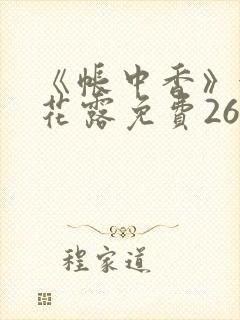 《帐中香》
花露免費26
程家道